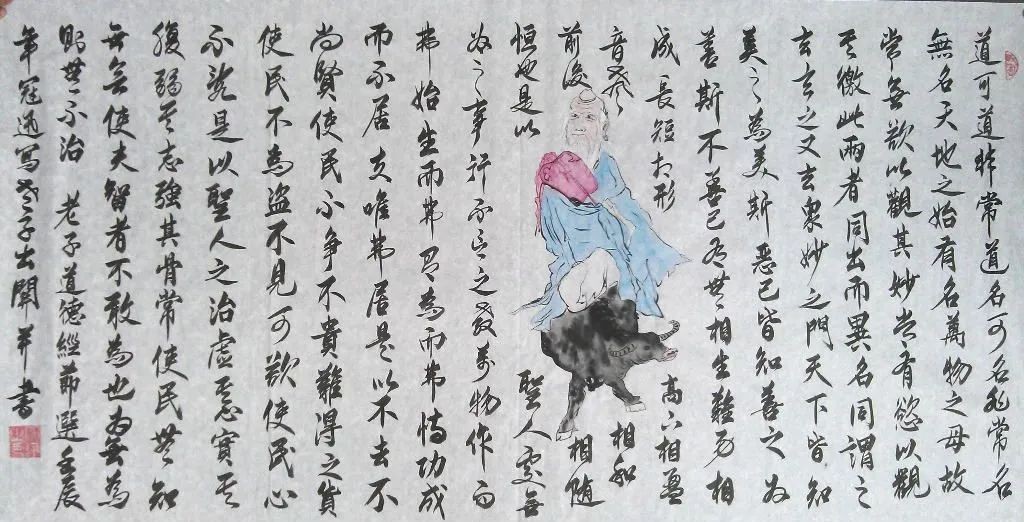 道可道非常道名可名非常名
無名天地之始有名萬物之母故
常無欲以觀其妙常有慾以觀
其徼此兩者同出而異名同謂之
玄玄之又玄衆妙之門天下皆知
美之為美斯惡已皆知善之為
善斯不善已有無相生難易相
成長短相形高下相盈
音聲相和
前後相隨
恒也是以聖人處無
為之事行不言之教萬物作而
弗始生而弗有為而弗恃功成
而不居夫唯弗居是以不去不
尚賢使民不争不貴難得之貨
使民不為盗不見可欲使民心
不亂是以聖人之治虚其心實其
腹弱其志強其骨常使民無知
無欲使夫智者不敢為也為無為
則無不治 老子道德經節選 壬辰
年冠通寫老子出關并書